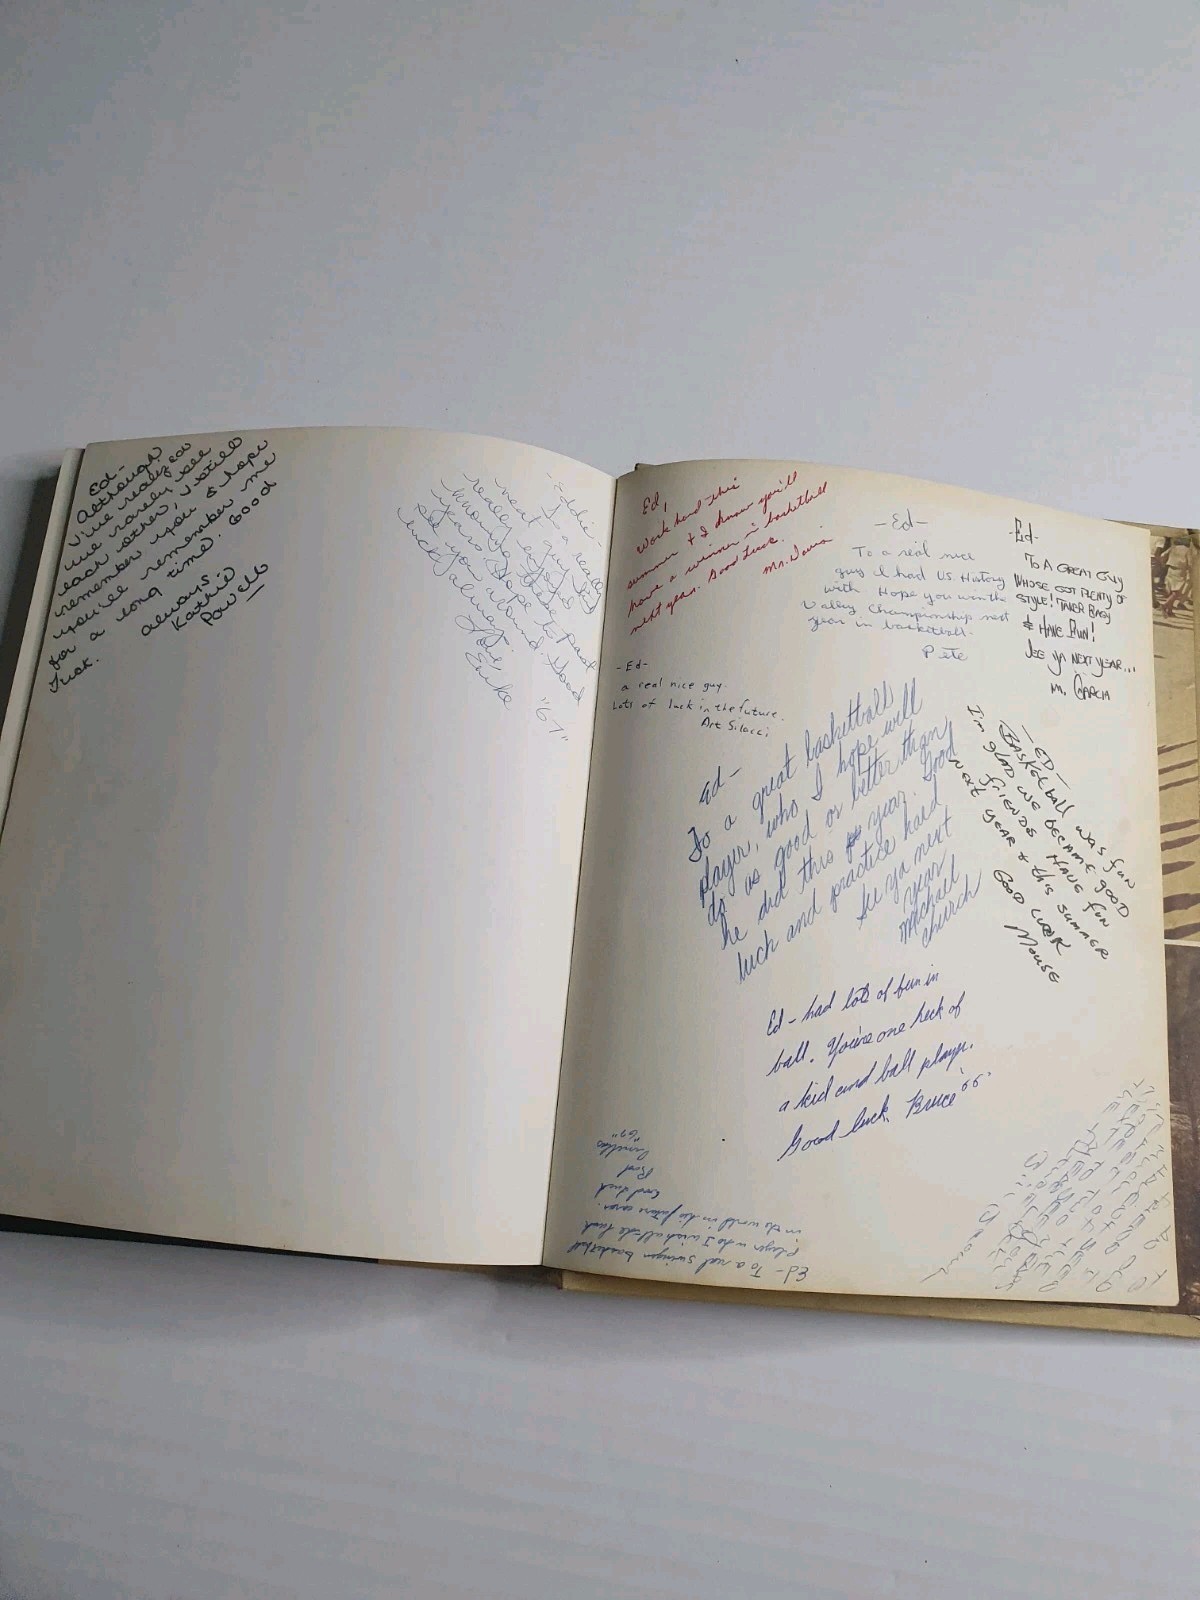 Ed-
Although
I've really
we rarely see
each other, I still
remember you & hope
you'll remember me
for a long time. Good
luck.
always
Kathie
Powell
-Eddie-
To a really
neat guy I've
really enjoyed
knowing these past
years. Hope to
see you around. Good
luck always
Love,
"67"
Ed,
Work hard this
summer & I know you'll
have a winner in basketball
next year. Good luck.
Mr.
-Ed-
To a real nice
guy I had U.S. History
with Hope you win the
Valley Championship next
year in basketball.
Pete
-Ed-
TO A GREAT GUY
WHOSE GOT PLENTY OF
STYLE! TAKE EASY
& HAVE FUN!
SEE YA NEXT YEAR...
M. GARCIA
-Ed-
a real nice guy.
Lots of luck in the future.
Art Silacci
Ed-
To a great basketball
player, who I hope will
do as good or better than
he did this year. Good
luck and practice hard
See ya next
year
Michael
Church
-ED-
BASKETBALL WAS FUN
I'm GLAD WE BECAME GOOD
FRIENDS HAVE FUN
NEXT YEAR & this SUMMER
GOOD LUCK
MOUSE
Ed- had lots of fun in
ball. You're one heck of
a kid and ball player.
Good luck, Bruce '66.
Ed- To a real swinger basketball
player who I wish all the luck
in the world in his future career.
Good luck
"67"